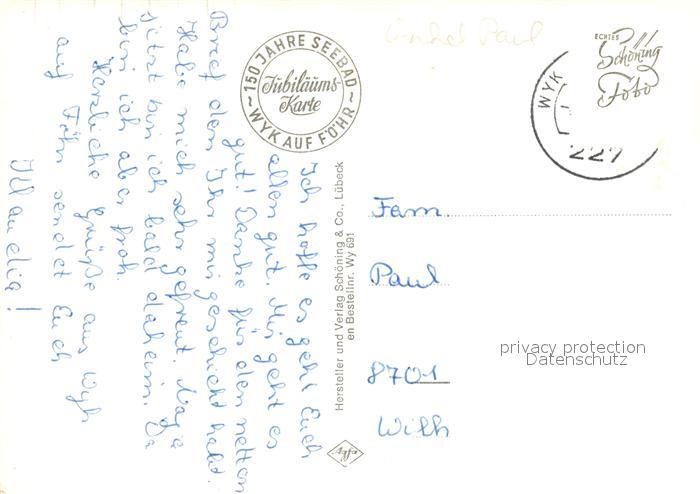 Ich hoffe es geht Euch
allen gut. Mir geht es
gut! Danke für den netten
Brief den Ihr mir geschickt habt.
Habe mich sehr gefreut. Na ja
jetzt bin ich bald daheim. Da
bin ich aber froh.
Herzliche Grüße aus Wyk
auf Föhr sendet Euch
Klaudia!
~ 150 JAHRE SEEBAD ~
WYK AUF FÖHR
Jubiläums-
Karte
Hersteller und Verlag Schöning & Co., Lübeck
en Bestellnr. Wy 691
Agfa
Paul
WYK
227
ECHTES
Schöning
Foto
Fam.
Paul
8701
privacy protection
Datenschutz